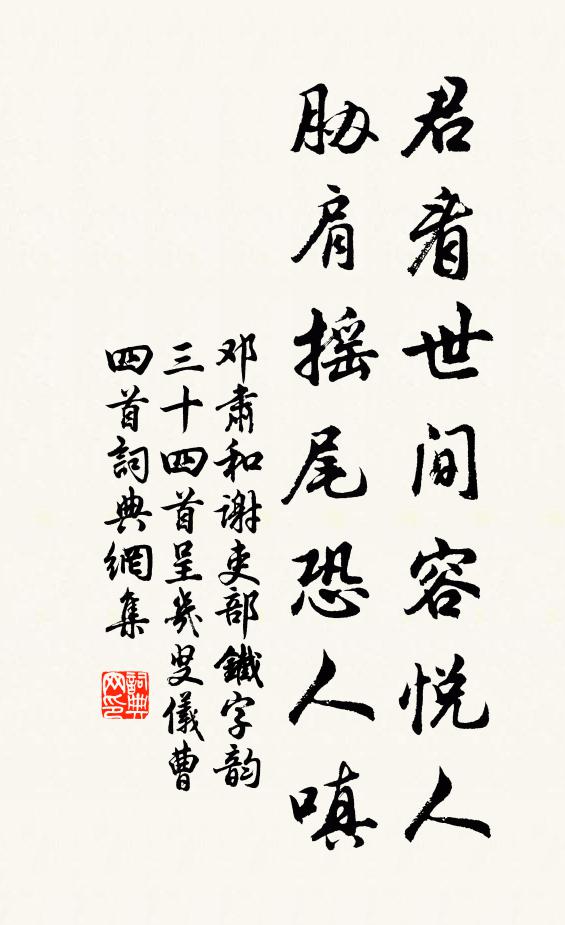 君看世间容悦人
胁肩摇尾恐人嗔
邓肃和谢吏部鐵字韵
三十四首呈幾叟儀曹
四首詞典網集
詞典网印